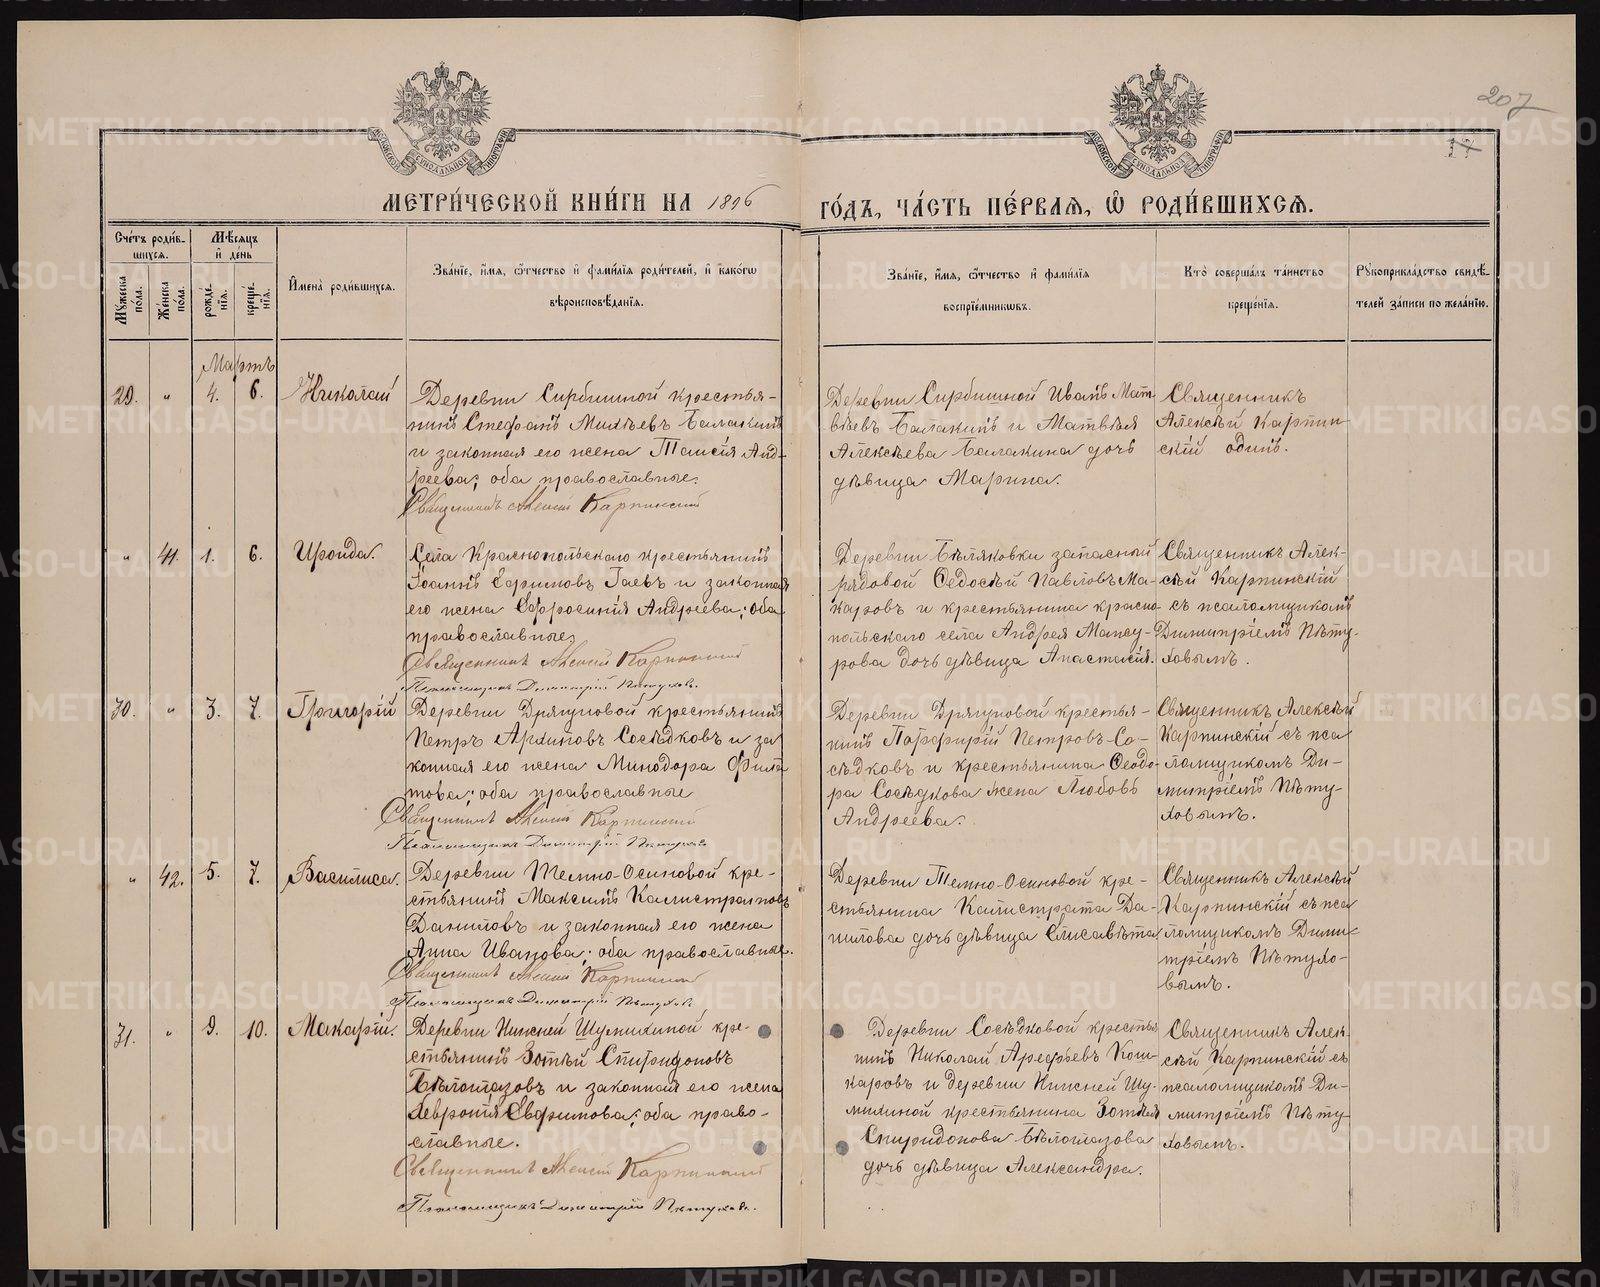 207
17
МЕТРИ́ЧЕСКОЙ КНИ́ГИ НА 1896 ГО́ДЪ, ЧА́СТЬ ПЕ́РВАЯ, Ѡ РОДИ́ВШИХСЯ.
Сче́тъ роди́вшихся.
Мꙋ́жеска по́ла.
Же́нска по́ла.
Мѣ́сяцъ и де́нь
рожде́нїя.
креще́нїя.
Имена̀ роди́вшихся.
Зва́нїе, и́мя, ѻ́тчество и фами́лїя роди́телей, и како́гѡ
вѣроисповѣ́данїя.
Зва́нїе, и́мя, ѻ́тчество и фами́лїя
воспрїе́мникѡвъ.
Кто̀ соверша́лъ та́инство
креще́нїя.
Рꙋкоприкла́дство свидѣ́телей за́писи по жела́нїю.
Мартъ
29. " 4. 6. Николай
Деревни Сирбишной крестья-
нинъ Стефанъ Михѣевъ Балакинъ
и законная его жена Таисія Анд-
реева; оба православные.
Священникъ Алексій Карпинскій
Деревни Сирбишной Иванъ Мат-
вѣевъ Балакинъ и Матвѣя
Алексѣева Балакина дочь
дѣвица Марина.
Священникъ
Алексѣй Карпин-
скій одинъ.
" 41. 1. 6. Ираида.
Села Краснопольскаго крестьянинъ
Іоаннъ Ефимовъ Гаевъ и законная
его жена Евфросинія Андреева; оба
православные.
Священникъ Алексій Карпинскій
Псаломщикъ Димитрій Пѣтуховъ.
Деревни Бѣляковки запасный
рядовой Ѳедосѣй Павловъ Ма-
каровъ и крестьянина красно-
польскаго села Андрея Мансу-
рова дочь дѣвица Анастасія.
Священникъ Алек-
сѣй Карпинскій
съ псаломщикомъ
Димитріемъ Пѣту-
ховымъ.
30. " 3. 7. Григорій
Деревни Дрягуновой крестьянинъ
Петръ Архиповъ Сосѣдковъ и за
конная его жена Минодора Фила
това; оба православные
Священникъ Алексій Карпинскій
Псаломщикъ Димитрій Пѣтуховъ
Деревни Дрягуновой крестья-
нинъ Порфирій Петровъ Со-
сѣдковъ и крестьянина Ѳеодо-
ра Сосѣдкова жена Любовь
Андреева.
Священникъ Алексѣй
Карпинскій съ пса
ломщикомъ Ди-
митріемъ Пѣту-
ховымъ.
" 42. 5. 7. Василиса.
Деревни Темно-Осиновой кре-
стьянинъ Максимъ Калистратовъ
Даниловъ и законная его жена
Анна Иванова; оба православные.
Священникъ Алексій Карпинскій
Псаломщикъ Димитрій Пѣтуховъ
Деревни Темно-Осиновой кре-
стьянина Калистрата Да-
нилова дочь дѣвица Елисавѣта.
Священникъ Алексѣй
Карпинскій съ пса
ломщикомъ Дими
тріемъ Пѣтухо-
вымъ.
31. " 9. 10. Макарій.
Деревни Нижней Шумихиной кре-
стьянинъ Зотѣй Спиридоновъ
Бѣлоглазовъ и законная его жена
Хеврония Евфимова; оба право-
славные.
Священникъ Алексій Карпинскій
Псаломщикъ Димитрій Пѣтуховъ.
Деревни Сосѣдковой крестья
нинъ Николай Арефьевъ Кош-
каровъ и деревни Нижней Шу-
михиной крестьянина Зотѣя
Спиридонова Бѣлоглазова
дочь дѣвица Александра.
Священникъ Алек-
сѣй Карпинскій съ
псаломщикомъ Ди-
митріемъ Пѣту-
ховымъ.
METRIKI.GASO-URAL.RU